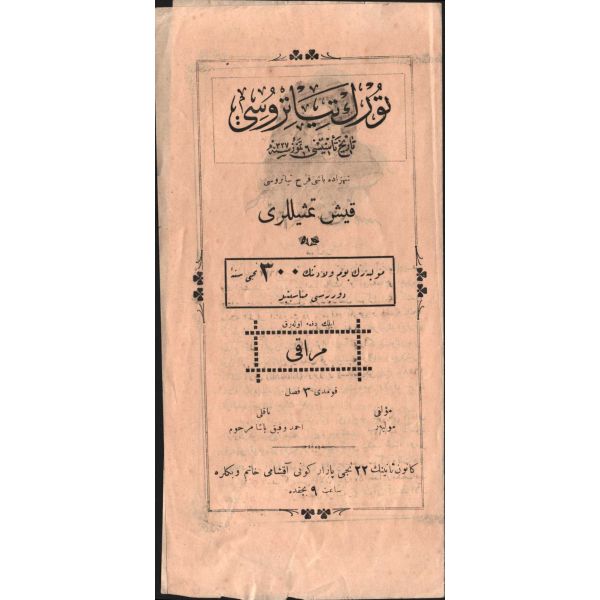 تورك تياتروسی
تاريخ تأسيسی ٦ تموز سنه ٣٣٧
شهزاده باشی فرح تياتروسی
قيش تمثيللری
موليهرك يوم ولادتنك ٣٠٠ نجی سنهٔ
دوريه‌سی مناسبتيله
ايلك دفعه اوله‌رق
مراقی
قومدی ٣ فصل
مؤلفی ناقلی
موليهر احمد وفيق پاشا مرحوم
كانون ثانينك ٢٢ نجی پازار كونی آقشامی خانم و بكلره
ساعت ٩ بچقده